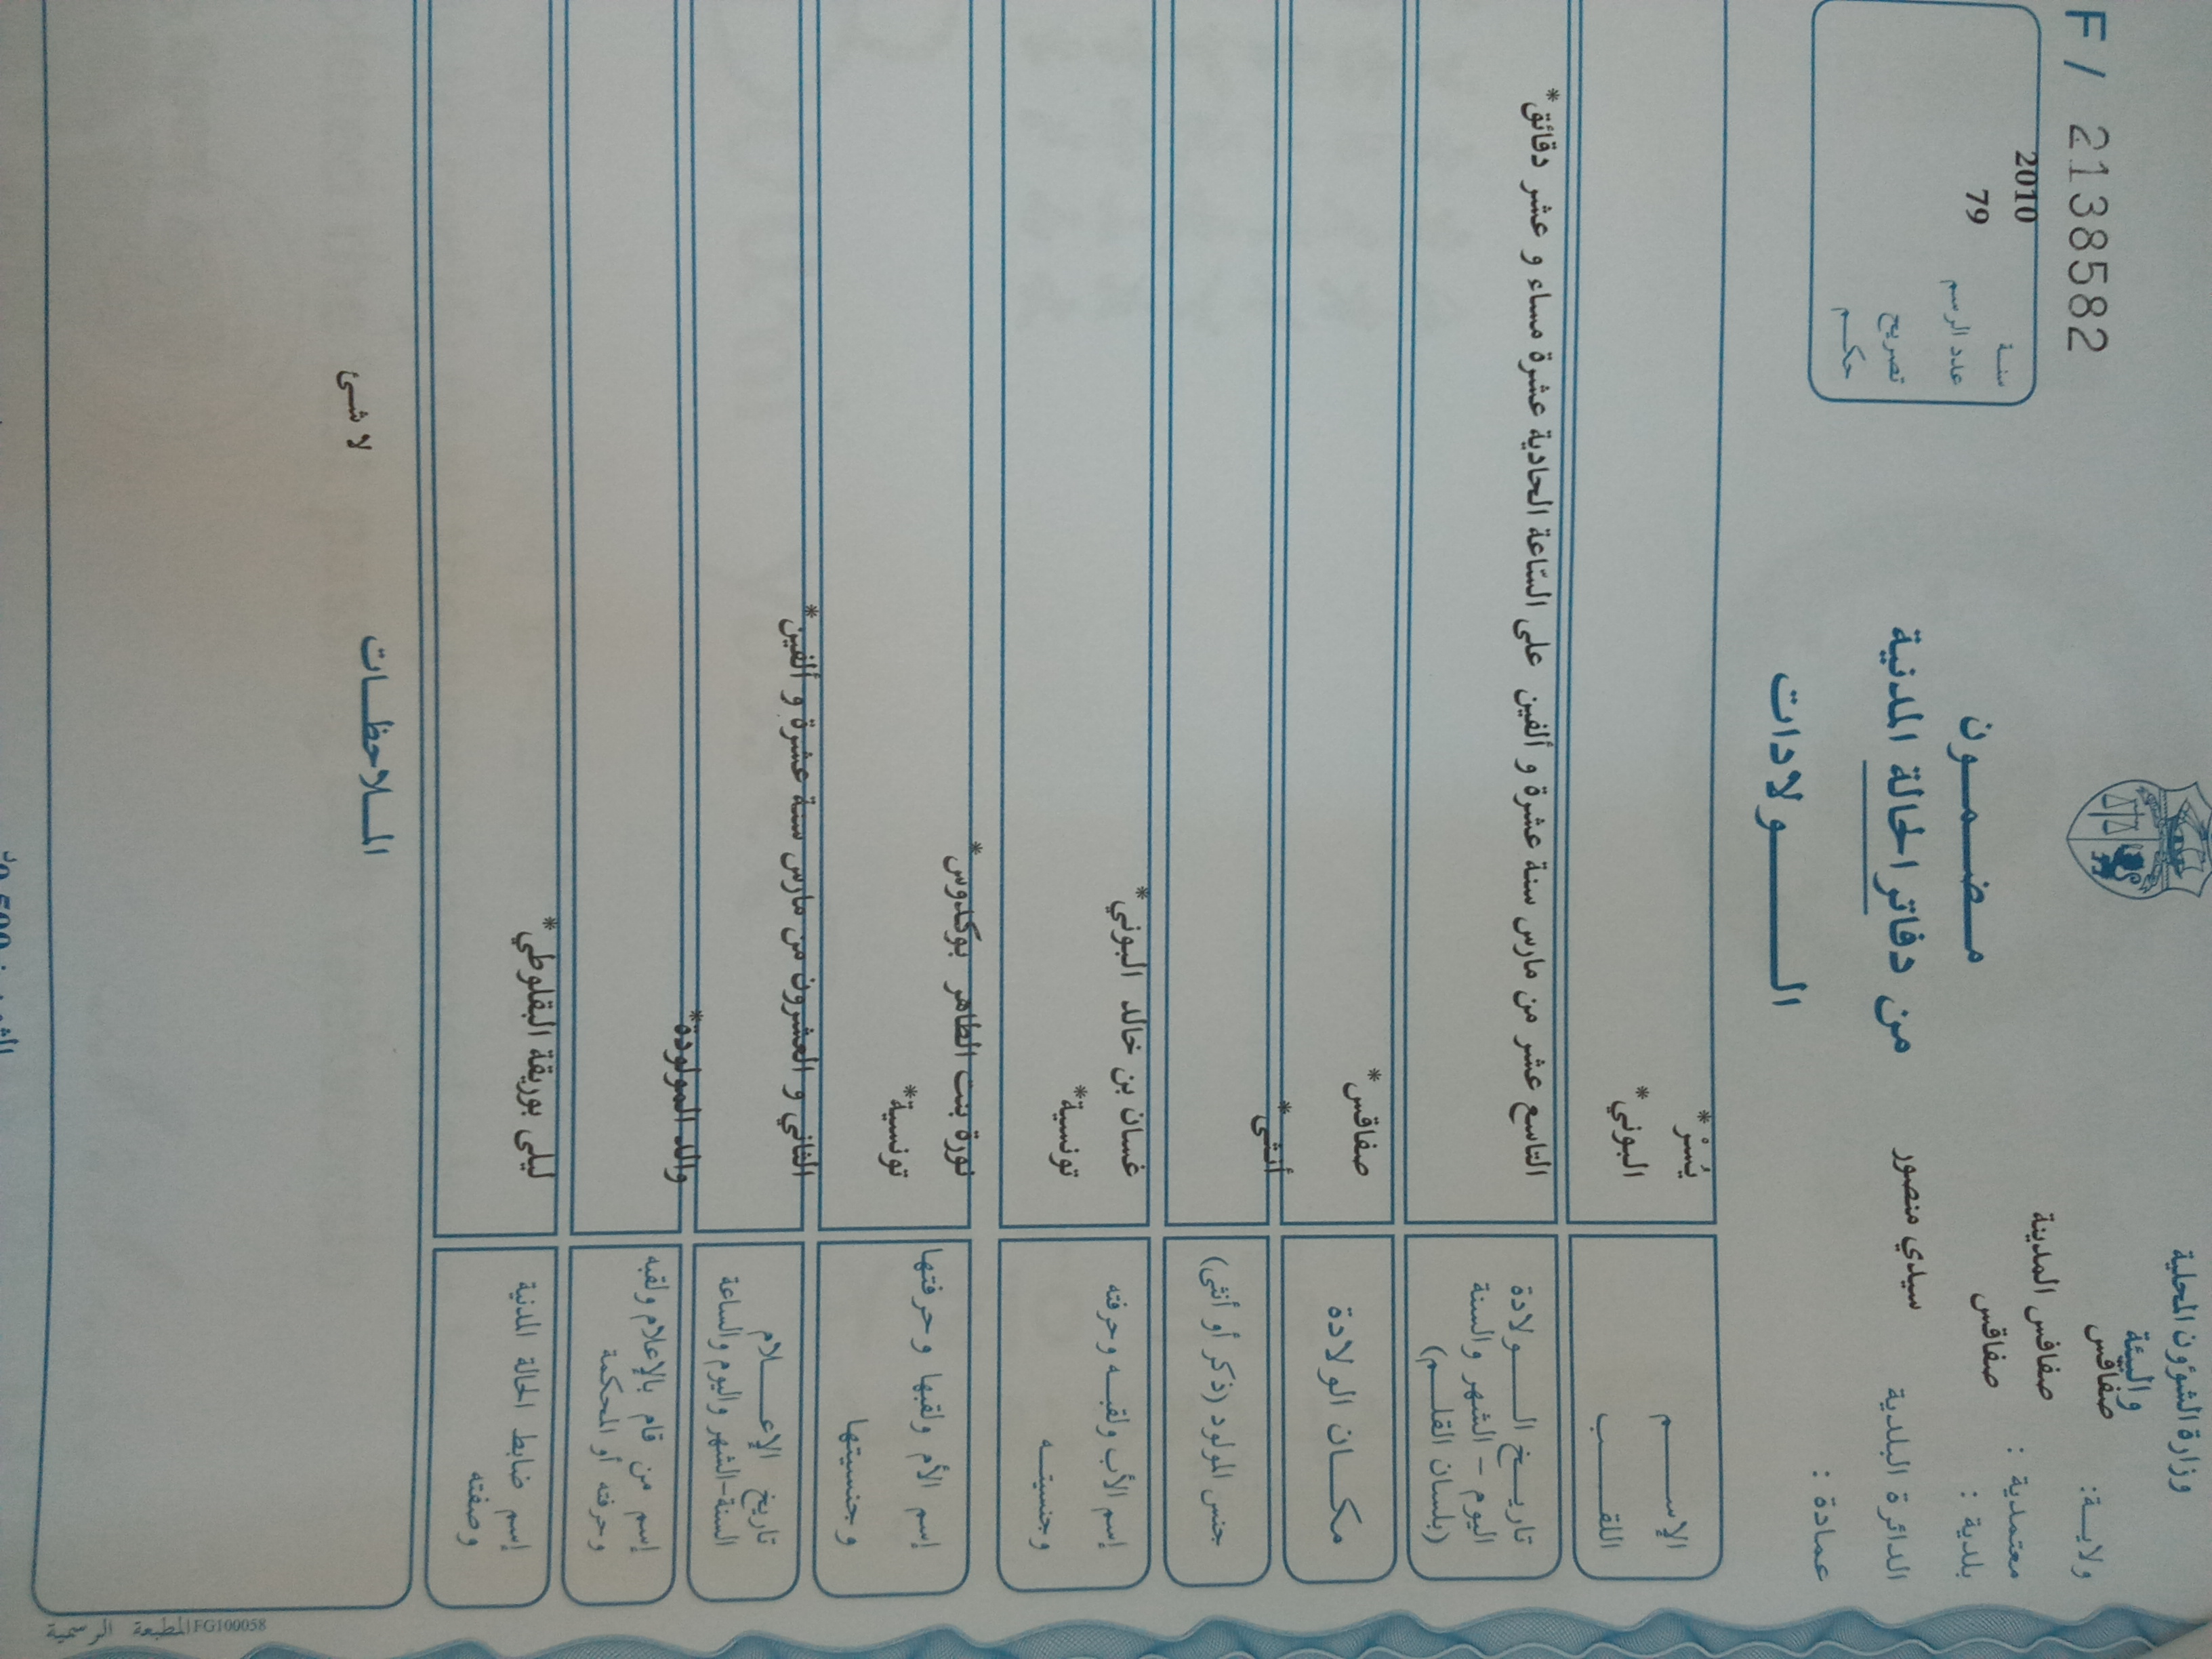 F / 2138582
وزارة الشؤون المحلية
والبيئة
ولاية: صفاقس
معتمدية : صفاقس المدينة
بلدية : صفاقس
الدائرة البلدية سيدي منصور
عمادة :
سنة 2010
عدد الرسم 79
تصريح
حكم
مضمون
من دفاتر الحالة المدنية
الولادات
الإسم يُسْر*
اللقب البوني*
تاريخ الولادة
اليوم - الشهر والسنة
(بلسان القلم)
التاسع عشر من مارس سنة عشرة و ألفين على السّاعة الحادية عشرة مساء و عشر دقائق*
مكان الولادة صفاقس*
جنس المولود (ذكر أو أنثى) أنثى*
إسم الأب ولقبه وحرفته غسان بن خالد البوني*
وجنسيته تونسية*
إسم الأم ولقبها وحرفتها نورة بنت الطاهر بوكدوس*
وجنسيتها تونسية*
تاريخ الإعلام
السنة-الشهر واليوم والساعة
الثاني و العشرون من مارس سنة عشرة و ألفين*
إسم من قام بالإعلام ولقبه
وحرفته أو المحكمة
والد المولودة*
إسم ضابط الحالة المدنية ليلى بوريقة البقلوطي*
وصفته
الملاحظات
لا شئ
المطبعة الرسمية FG100058